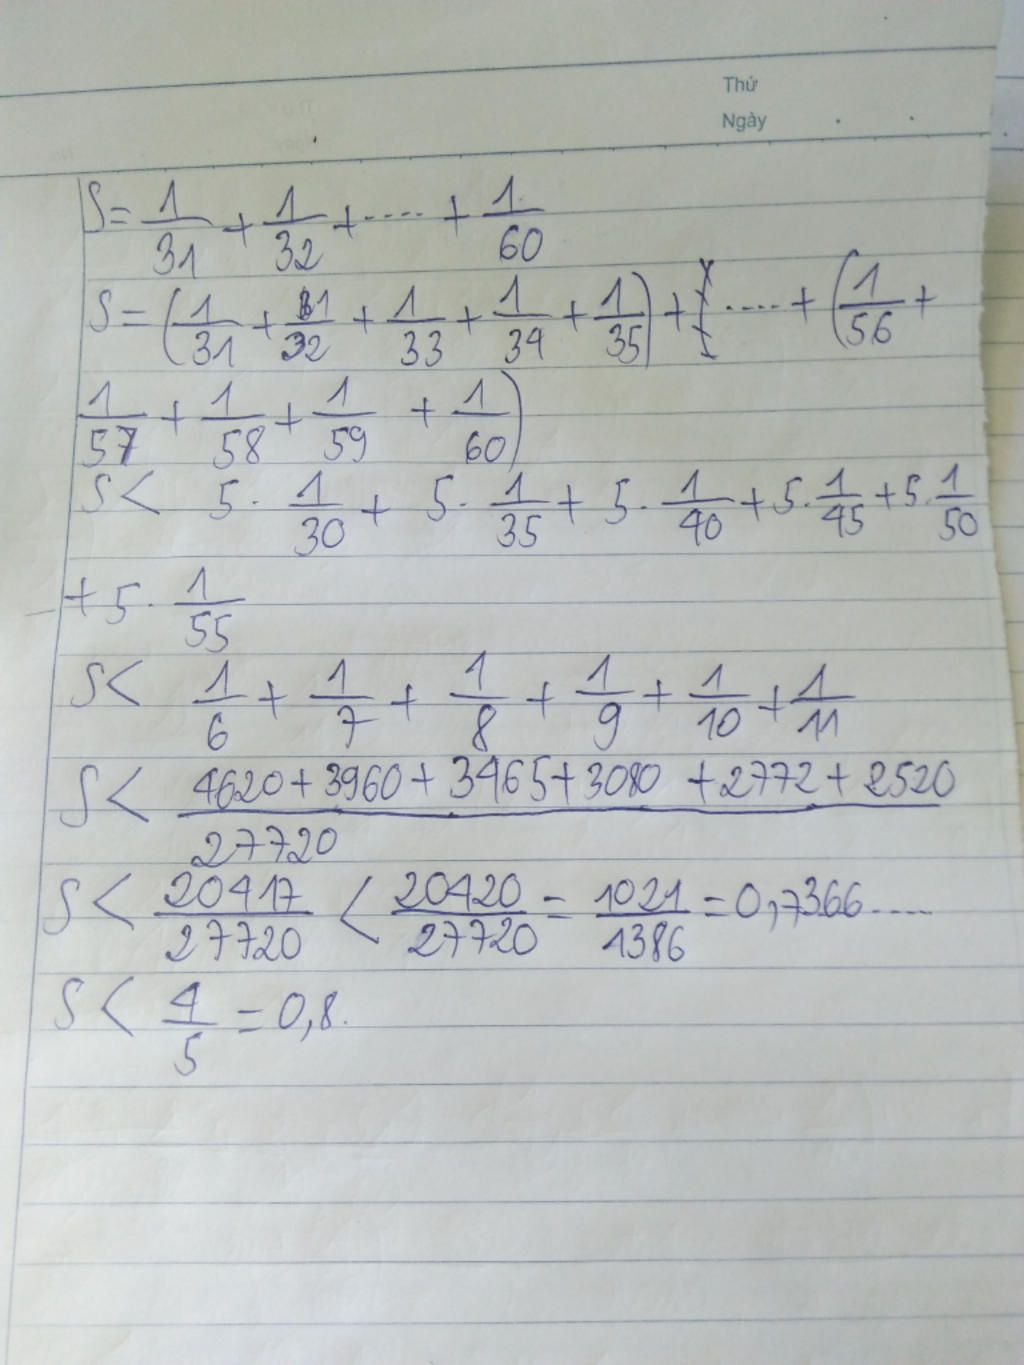 Thứ
Ngày
S = 1/31 + 1/32 + .... + 1/60
S = (1/31 + 1/32 + 1/33 + 1/34 + 1/35) + .... + (1/56 +
1/57 + 1/58 + 1/59 + 1/60)
S < 5 . 1/30 + 5 . 1/35 + 5 . 1/40 + 5 . 1/45 + 5 . 1/50
+ 5 . 1/55
S < 1/6 + 1/7 + 1/8 + 1/9 + 1/10 + 1/11
S < (4620 + 3960 + 3465 + 3080 + 2772 + 2520)/27720
S < 20417/27720 < 20420/27720 = 1021/1386 = 0,7366....
S < 4/5 = 0,8.